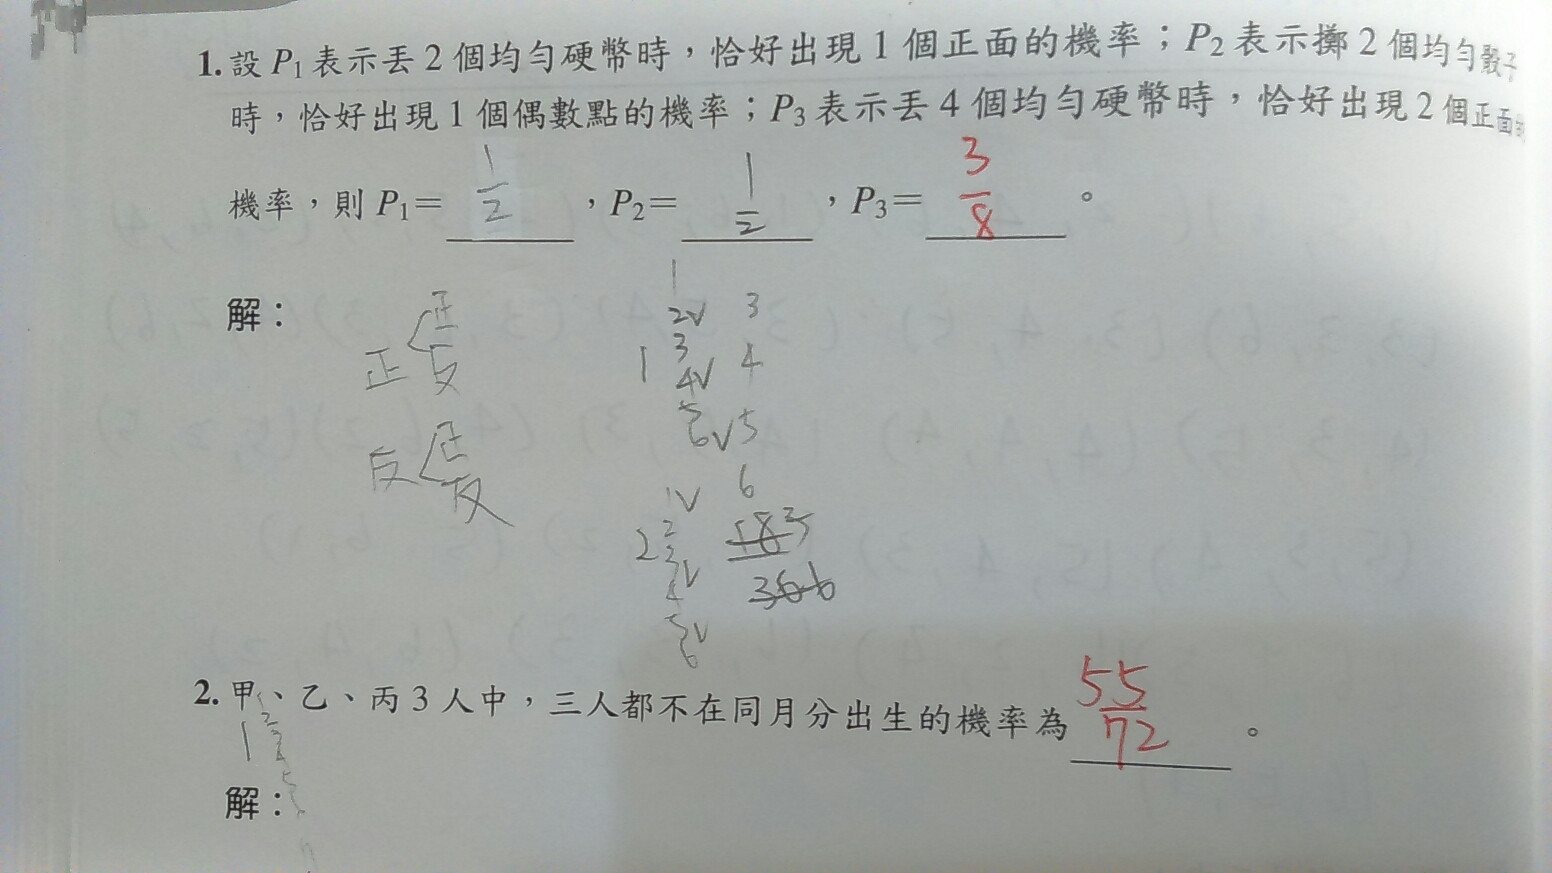 1. 設 P₁ 表示丟 2 個均勻硬幣時，恰好出現 1 個正面的機率；P₂ 表示擲 2 個均勻骰子
時，恰好出現 1 個偶數點的機率；P₃ 表示丟 4 個均勻硬幣時，恰好出現 2 個正面的
機率，則 P₁= 1/2 ，P₂= 1/2 ，P₃= 3/8 。
解：
正 正
反
反 正
反
1 1
2v
3
4v
5
6v
3
4
5
6
2 1v
2
3v
4
5v
6
2. 甲、乙、丙 3 人中，三人都不在同月分出生的機率為 55/72 。
1
解：